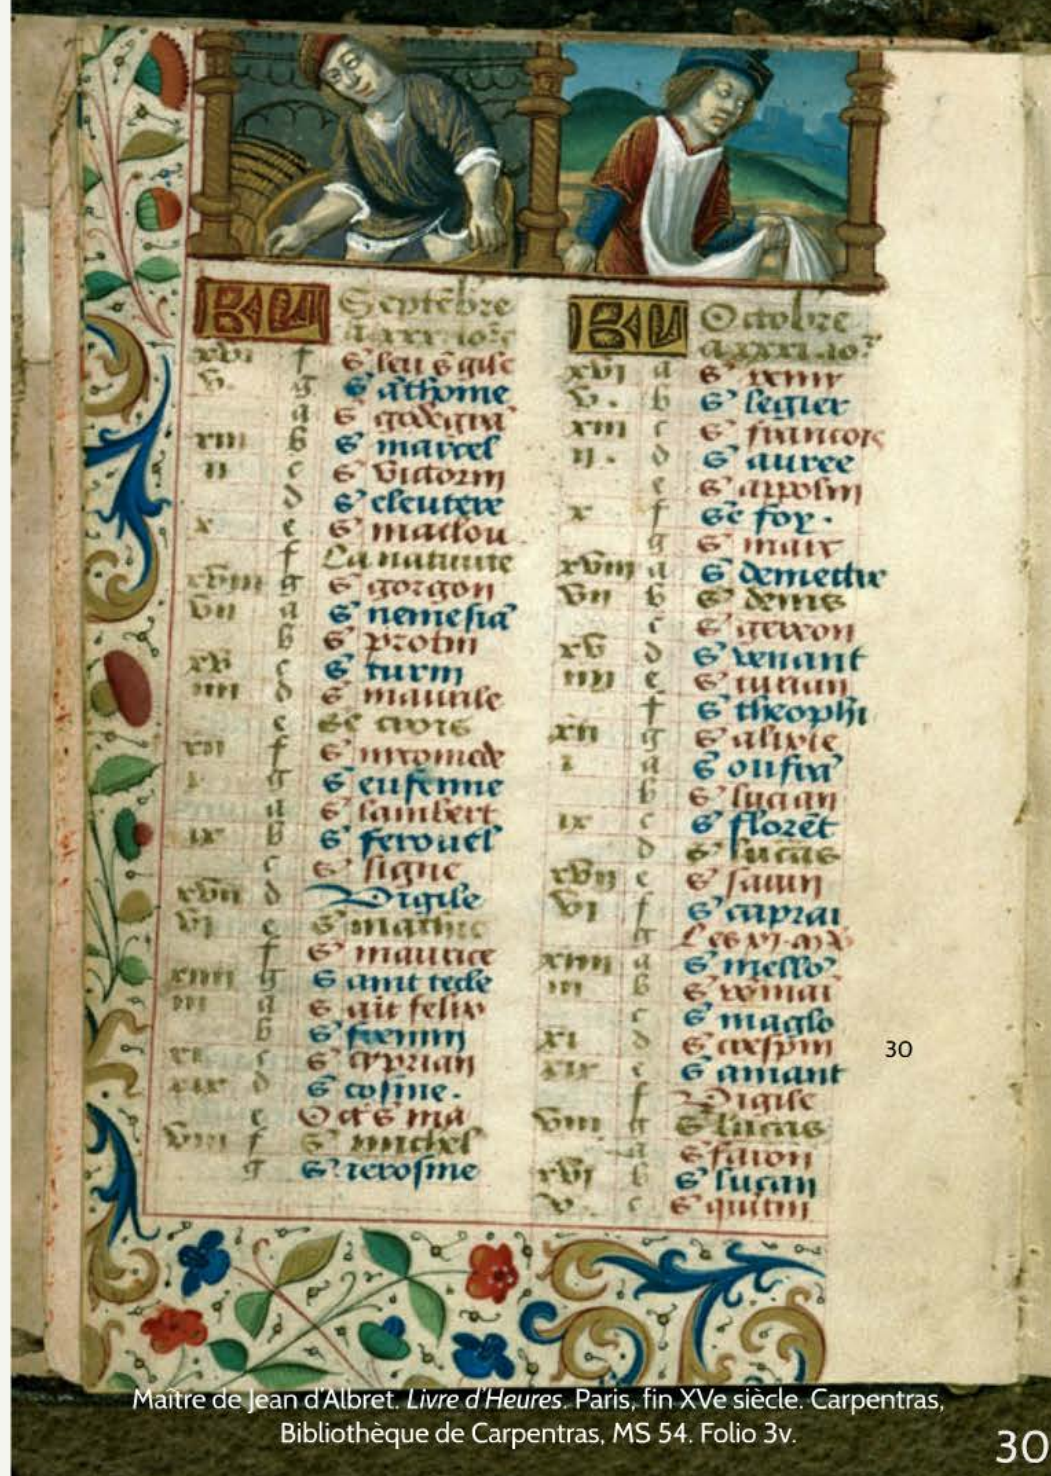 KL Septẽbre
a xxx. io's
xvi f S' leu s' gile
v. g S' ãthoine
a S' godegrã
xiii b S' marcel
ii c S' victorin
d S' eleutere
x e S' maclou
f La nativite
xviii g S' gorgon
vii a S' nemesiã
b S' protin
xv c S' turin
iiii d S' maurile
e Se crois
xii f S' nicomede
i g S' eufemie
a S' lambert
ix b S' ferouel
c S' signe
xvii d Vigile
vi e S' mathie
f S' maurice
xiiii g Saint tecle
iii a S' ait felix
b S' fremin
xi c S' cyprian
xix d S' cosme.
e Oct S' ma
viii f S' michel
g S' ierosme
KL Octobre
a xxxi. io's
xvi a S' remi
v. b S' legier
xiii c S' francois
ii. d S' auree
e S' appolin
x f Se foy.
g S' marc
xviii a S' demettre
vii b S' denis
c S' gereon
xv d S' venant
iiii e S' iulian
f S' theophi
xii g S' alixte
i a S' oufrã
b S' lucian
ix c S' florẽt
d S' lucas
xvii e S' savin
vi f S' caprai
g Les xi. m. v
xiiii a S' mello
iii b S' romai
c S' maglo
xi d S' crespin
xix e S' amant
f Vigile
viii g S' lucas
a S' faron
xvi b S' lucan
v. c S' quitin
30
Maître de Jean d'Albret. Livre d'Heures. Paris, fin XVe siècle. Carpentras,
Bibliothèque de Carpentras, MS 54. Folio 3v.
30